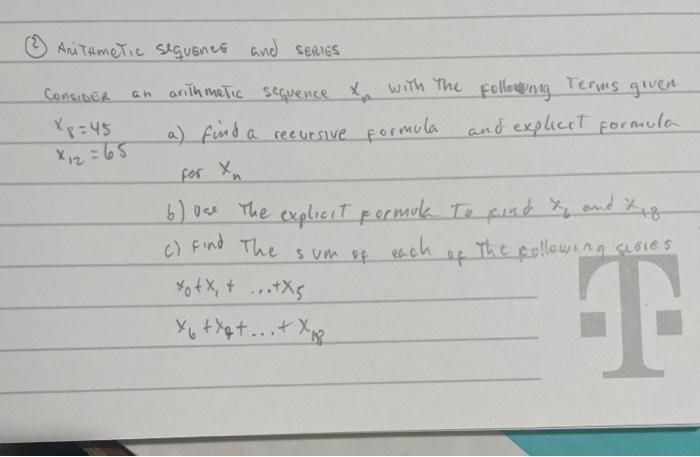 ② Arithmetic sequence and series
Consider an arithmetic sequence xₙ with the following terms given
x₈=45 a) find a recursive formula and explicit formula
x₁₂=65
for xₙ
b) Use the explicit formula to find x₆ and x₁₈
c) Find the sum of each of the following series
x₀+x₁+ ...+x₅
x₆+x₇+...+x₁₈
T